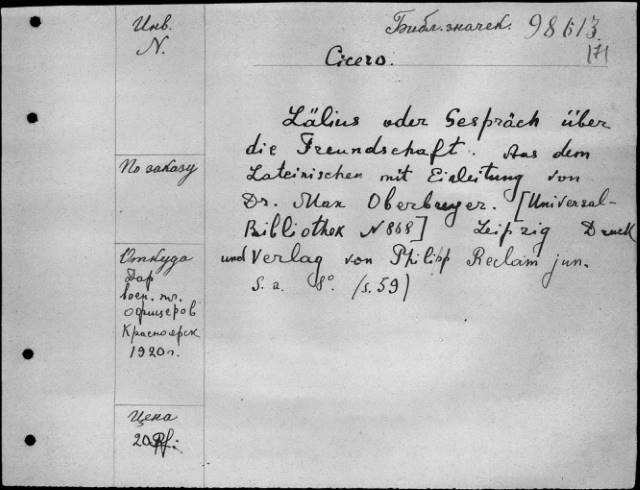 Инв.
N.
Библ. значек. 98613
171
Cicero.
Lälius oder Gespräch über
die Freundschaft. Aus dem
Lateinischen mit Einleitung von
Dr. Max Oberbreyer. [Universal-
Bibliothek N 868] Leipzig Druck
und Verlag von Philipp Reclam jun.
S. a. 8° (s. 59)
По заказу
Откуда
Дар
воен. пл.
офицеров
Красноярск
1920 г.
Цена
20 Pf.